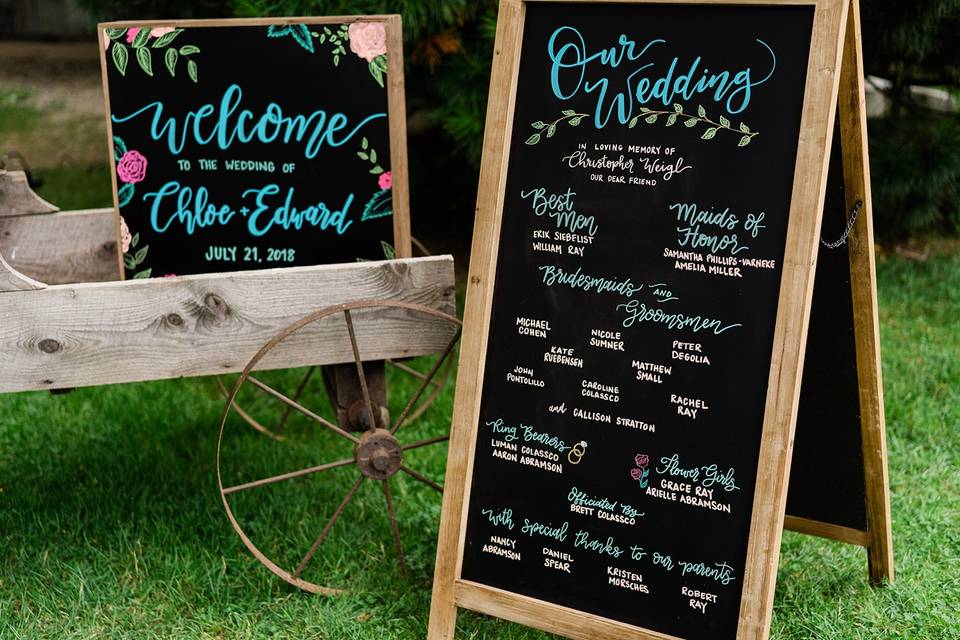 welcome
TO THE WEDDING OF
Chloe + Edward
JULY 21, 2018
Our
Wedding
IN LOVING MEMORY OF
Christopher Weigl
OUR DEAR FRIEND
Best
Men
ERIK SIEBELIST
WILLIAM RAY
Maids of
Honor
SAMANTHA PHILLIPS-VARNEKE
AMELIA MILLER
Bridesmaids AND
Groomsmen
MICHAEL
COHEN
NICOLE
SUMNER
PETER
DEGOLIA
KATE
RUEBENSEN
MATTHEW
SMALL
JOHN
PONTOLILLO
CAROLINE
COLASSCO
RACHEL
RAY
and CALLISON STRATTON
Ring Bearers
LUMAN COLASSCO
AARON ABRAMSON
Flower Girls
GRACE RAY
ARIELLE ABRAMSON
Officiated By
BRETT COLASSCO
with special thanks to our parents
NANCY
ABRAMSON
DANIEL
SPEAR
KRISTEN
MORSCHES
ROBERT
RAY